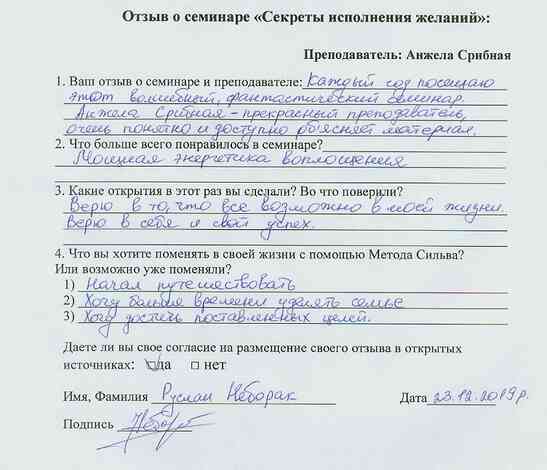 Отзыв о семинаре «Секреты исполнения желаний»:
Преподаватель: Анжела Срибная
1. Ваш отзыв о семинаре и преподавателе: Каждый год посещаю
этот волшебный, фантастический семинар.
Анжела Срибная - прекрасный преподаватель,
очень понятно и доступно объясняет материал.
2. Что больше всего понравилось в семинаре?
Мощная энергетика воплощения
3. Какие открытия в этот раз вы сделали? Во что поверили?
Верю в то, что все возможно в моей жизни.
Верю в себя и свой успех.
4. Что вы хотите поменять в своей жизни с помощью Метода Сильва?
Или возможно уже поменяли?
1) Начал путешествовать
2) Хочу больше времени уделять семье
3) Хочу достичь поставленных целей.
Даете ли вы свое согласие на размещение своего отзыва в открытых
источниках: да нет
Имя, Фамилия Руслан Неборак Дата 23.12.2019р.
Подпись